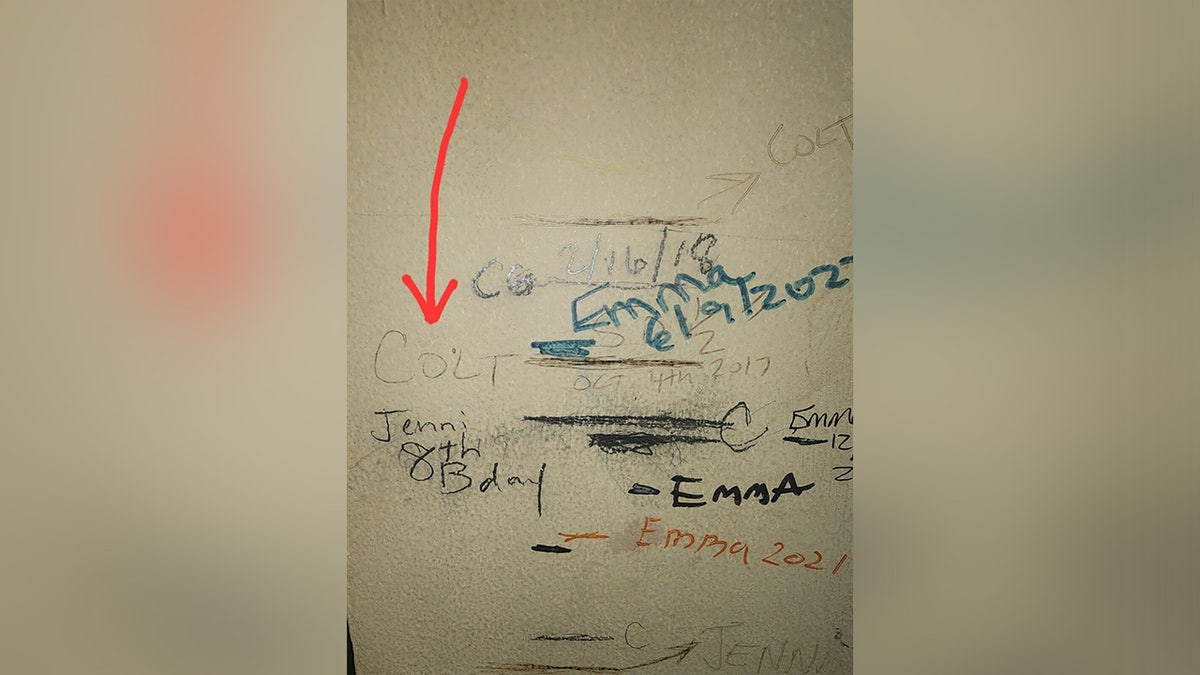 COLT
2/16/18
Emma
6/9/202
COLT
OCT 4th 2017
Jenni
8th
Bday
C
Emm
12
2
EMMA
Emma 2021
C
JENNI